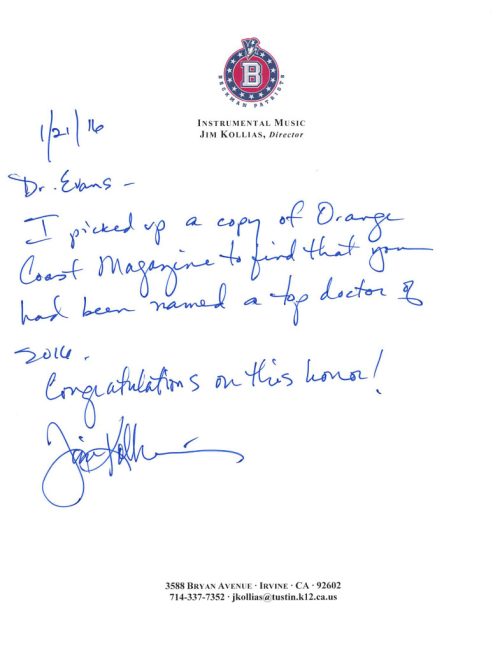 B
BECKMAN PATRIOTS
INSTRUMENTAL MUSIC
JIM KOLLIAS, Director
1/21/16
Dr. Evans -
I picked up a copy of Orange
Coast Magazine to find that you
had been named a top doctor of
2016.
Congratulations on this honor!
Jim Kollias
3588 BRYAN AVENUE · IRVINE · CA · 92602
714-337-7352 · jkollias@tustin.k12.ca.us